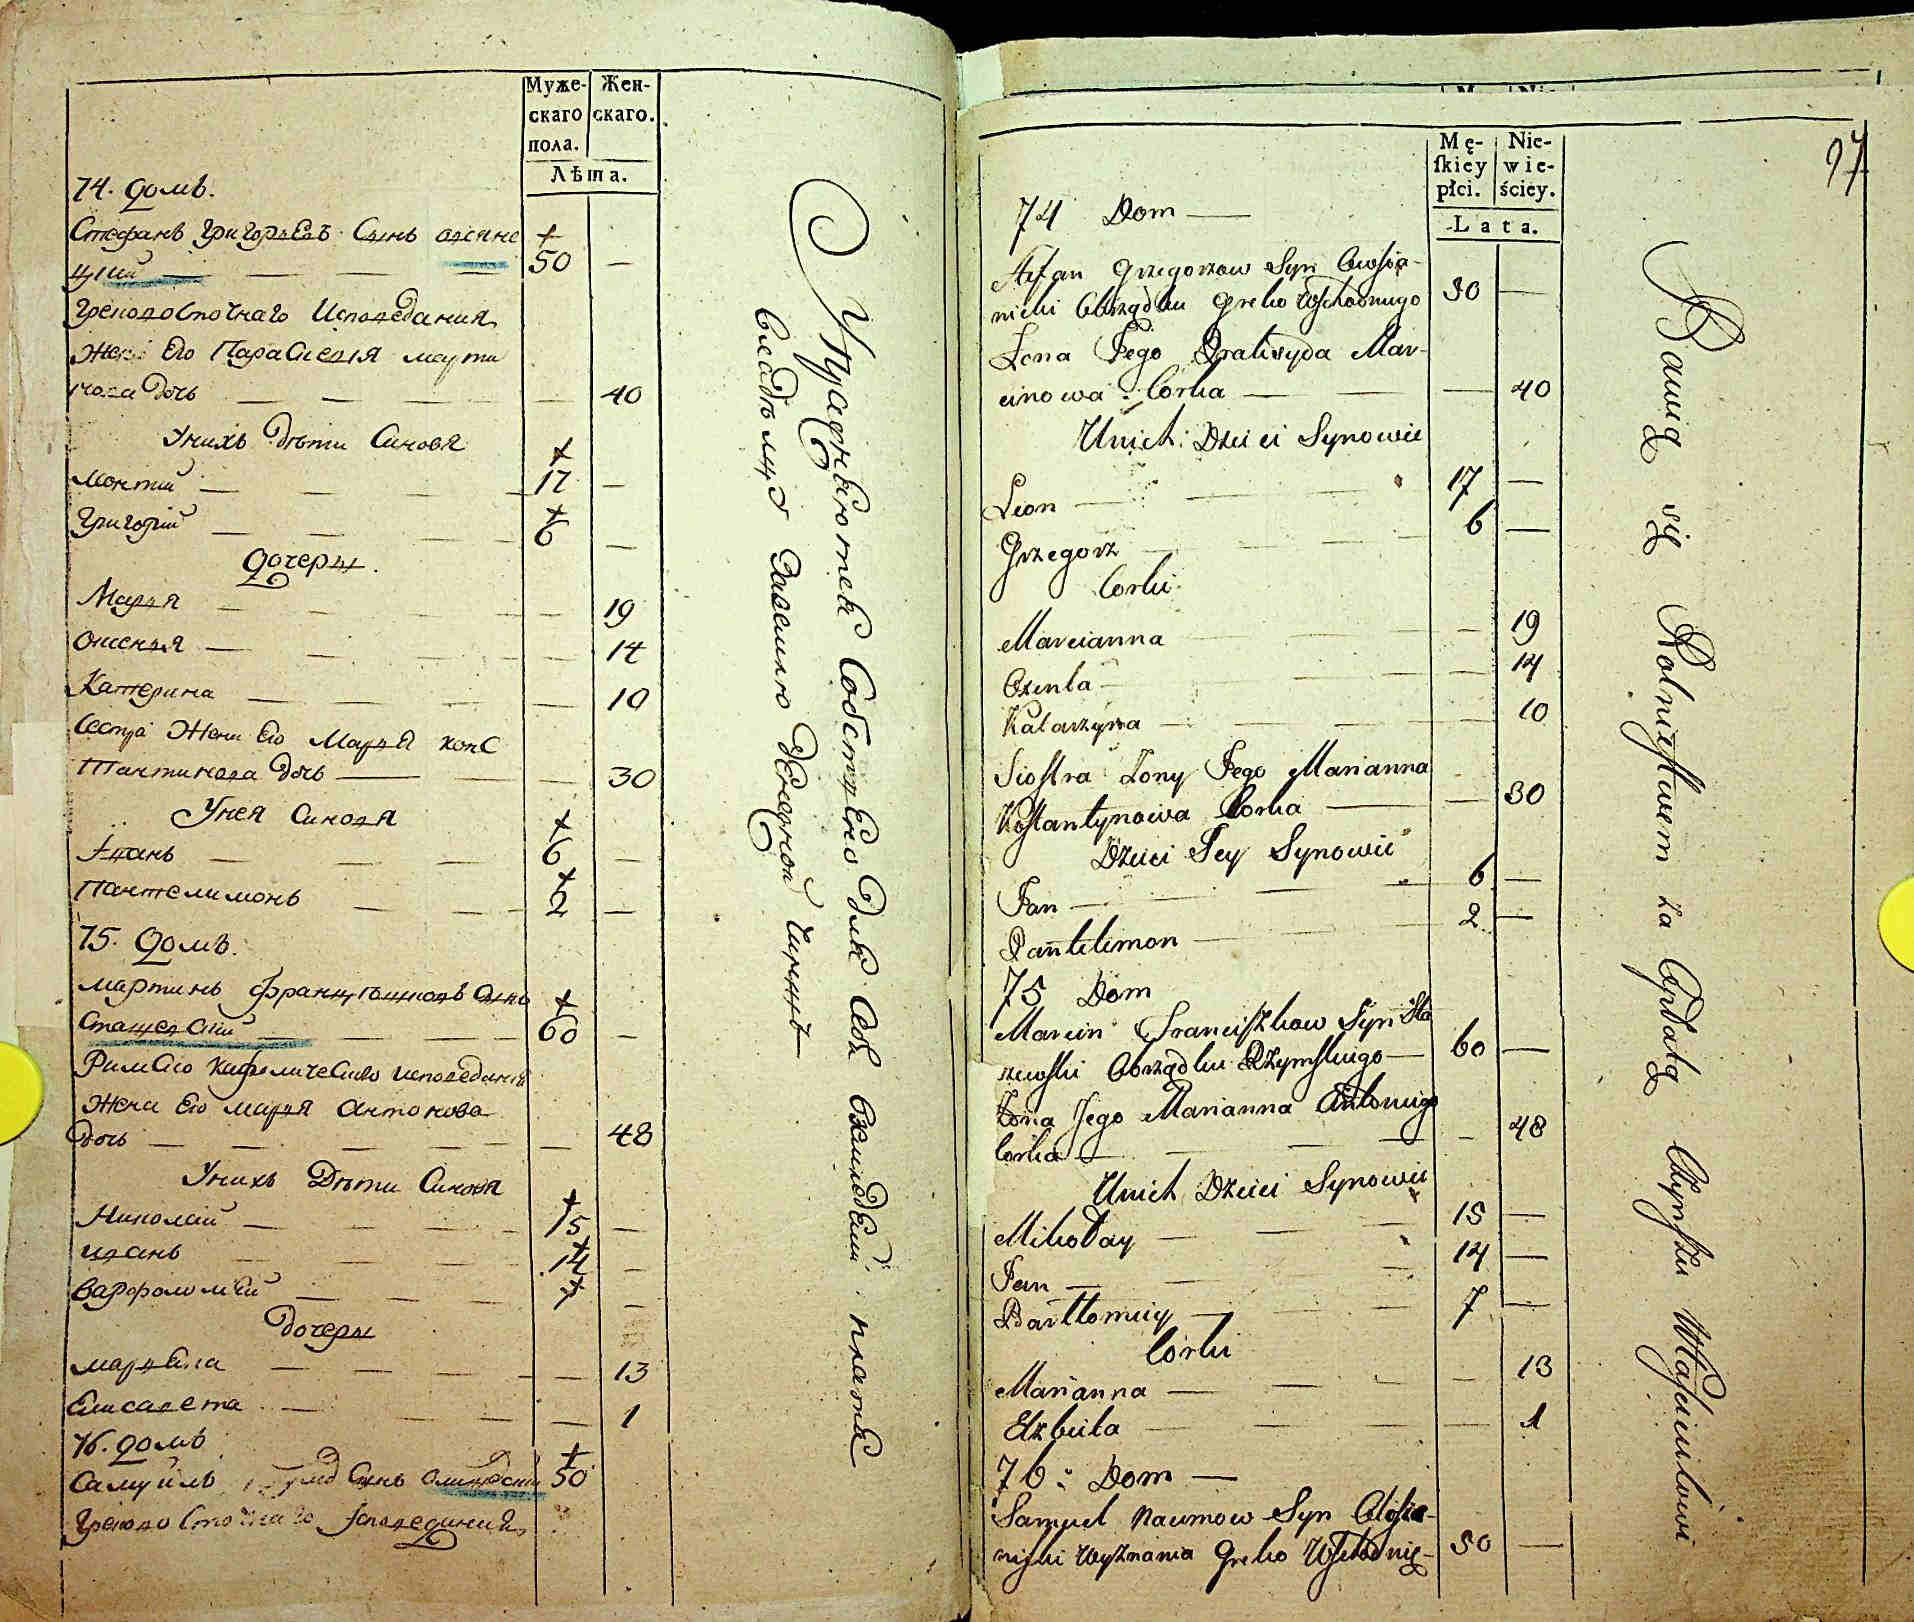 Муже-
скаго
пола.
Жен-
скаго.
Лѣта.
74. домъ.
Стефанъ Григорьевъ Сынъ
50 —
Грековосточнаго Исповедания
Жена Его Параскевия марти
нова дочь — 40
Унихъ дѣти Синовя
Леонтий — 17 —
Григорий — 6 —
дочеры.
Марья — 19
Оксенья — 14
Катерина — 10
Сестра Жени Его Марья конс
тантинова дочь — 30
Унея Синовя
Іванъ — 6 —
Пантелимонъ — 2 —
75. домъ.
мартинъ францишковъ синъ
Сташевский — 60 —
Римско кафоличеснаго исповеданія
Жена Его марья антонова
дочь — 48
Унихъ Дѣти Синовя
Николай — 15 —
иванъ — 14 —
варфоломей — 7 —
дочеры
марьяна — 13
Елисавета — 1
76. домъ
Самуйлъ Сынъ 50
Грековосточнаго Ісповедания
Упражняютея Собственно для себя хлебопашествомъ платя
Владѣльцу
97
Mę-
skiey
płci.
Nie-
wie-
ściey.
Lata.
74 Dom —
Stefan Grzegorzow Syn Owsia-
nicki Obrządku Greko Wschodniego 50 —
Żona Jego Praxeyda Mar-
cinowa Corka — 40
Unich Dzieci Synowie
Leon — 17 —
Grzegorz — 6 —
Corki
Marcianna — 19
Oxenta — 14
Katarzyna — 10
Siostra Żony Jego Marianna
Kostantynowa Corka — 30
Dzieci Jey Synowie
Jan — 6 —
Pantelimon — 2 —
75 Dom
Marcin Franciszkow Syn Sta
szewski Obrządku Rzymskiego — 60 —
Żona Jego Marianna Antoniego
Corka — 48
Unich Dzieci Synowie
Mikołay — 15 —
Jan — 14 —
Bartłomiey — 7 —
Corki
Marianna — 13
Elzbieta — 1
76: Dom —
Samuel Naumow Syn
Wyznania Greko Wschodnie- 50 —
Bawią się Rolnictwem za Opłatą Czynszu Włascicielowi